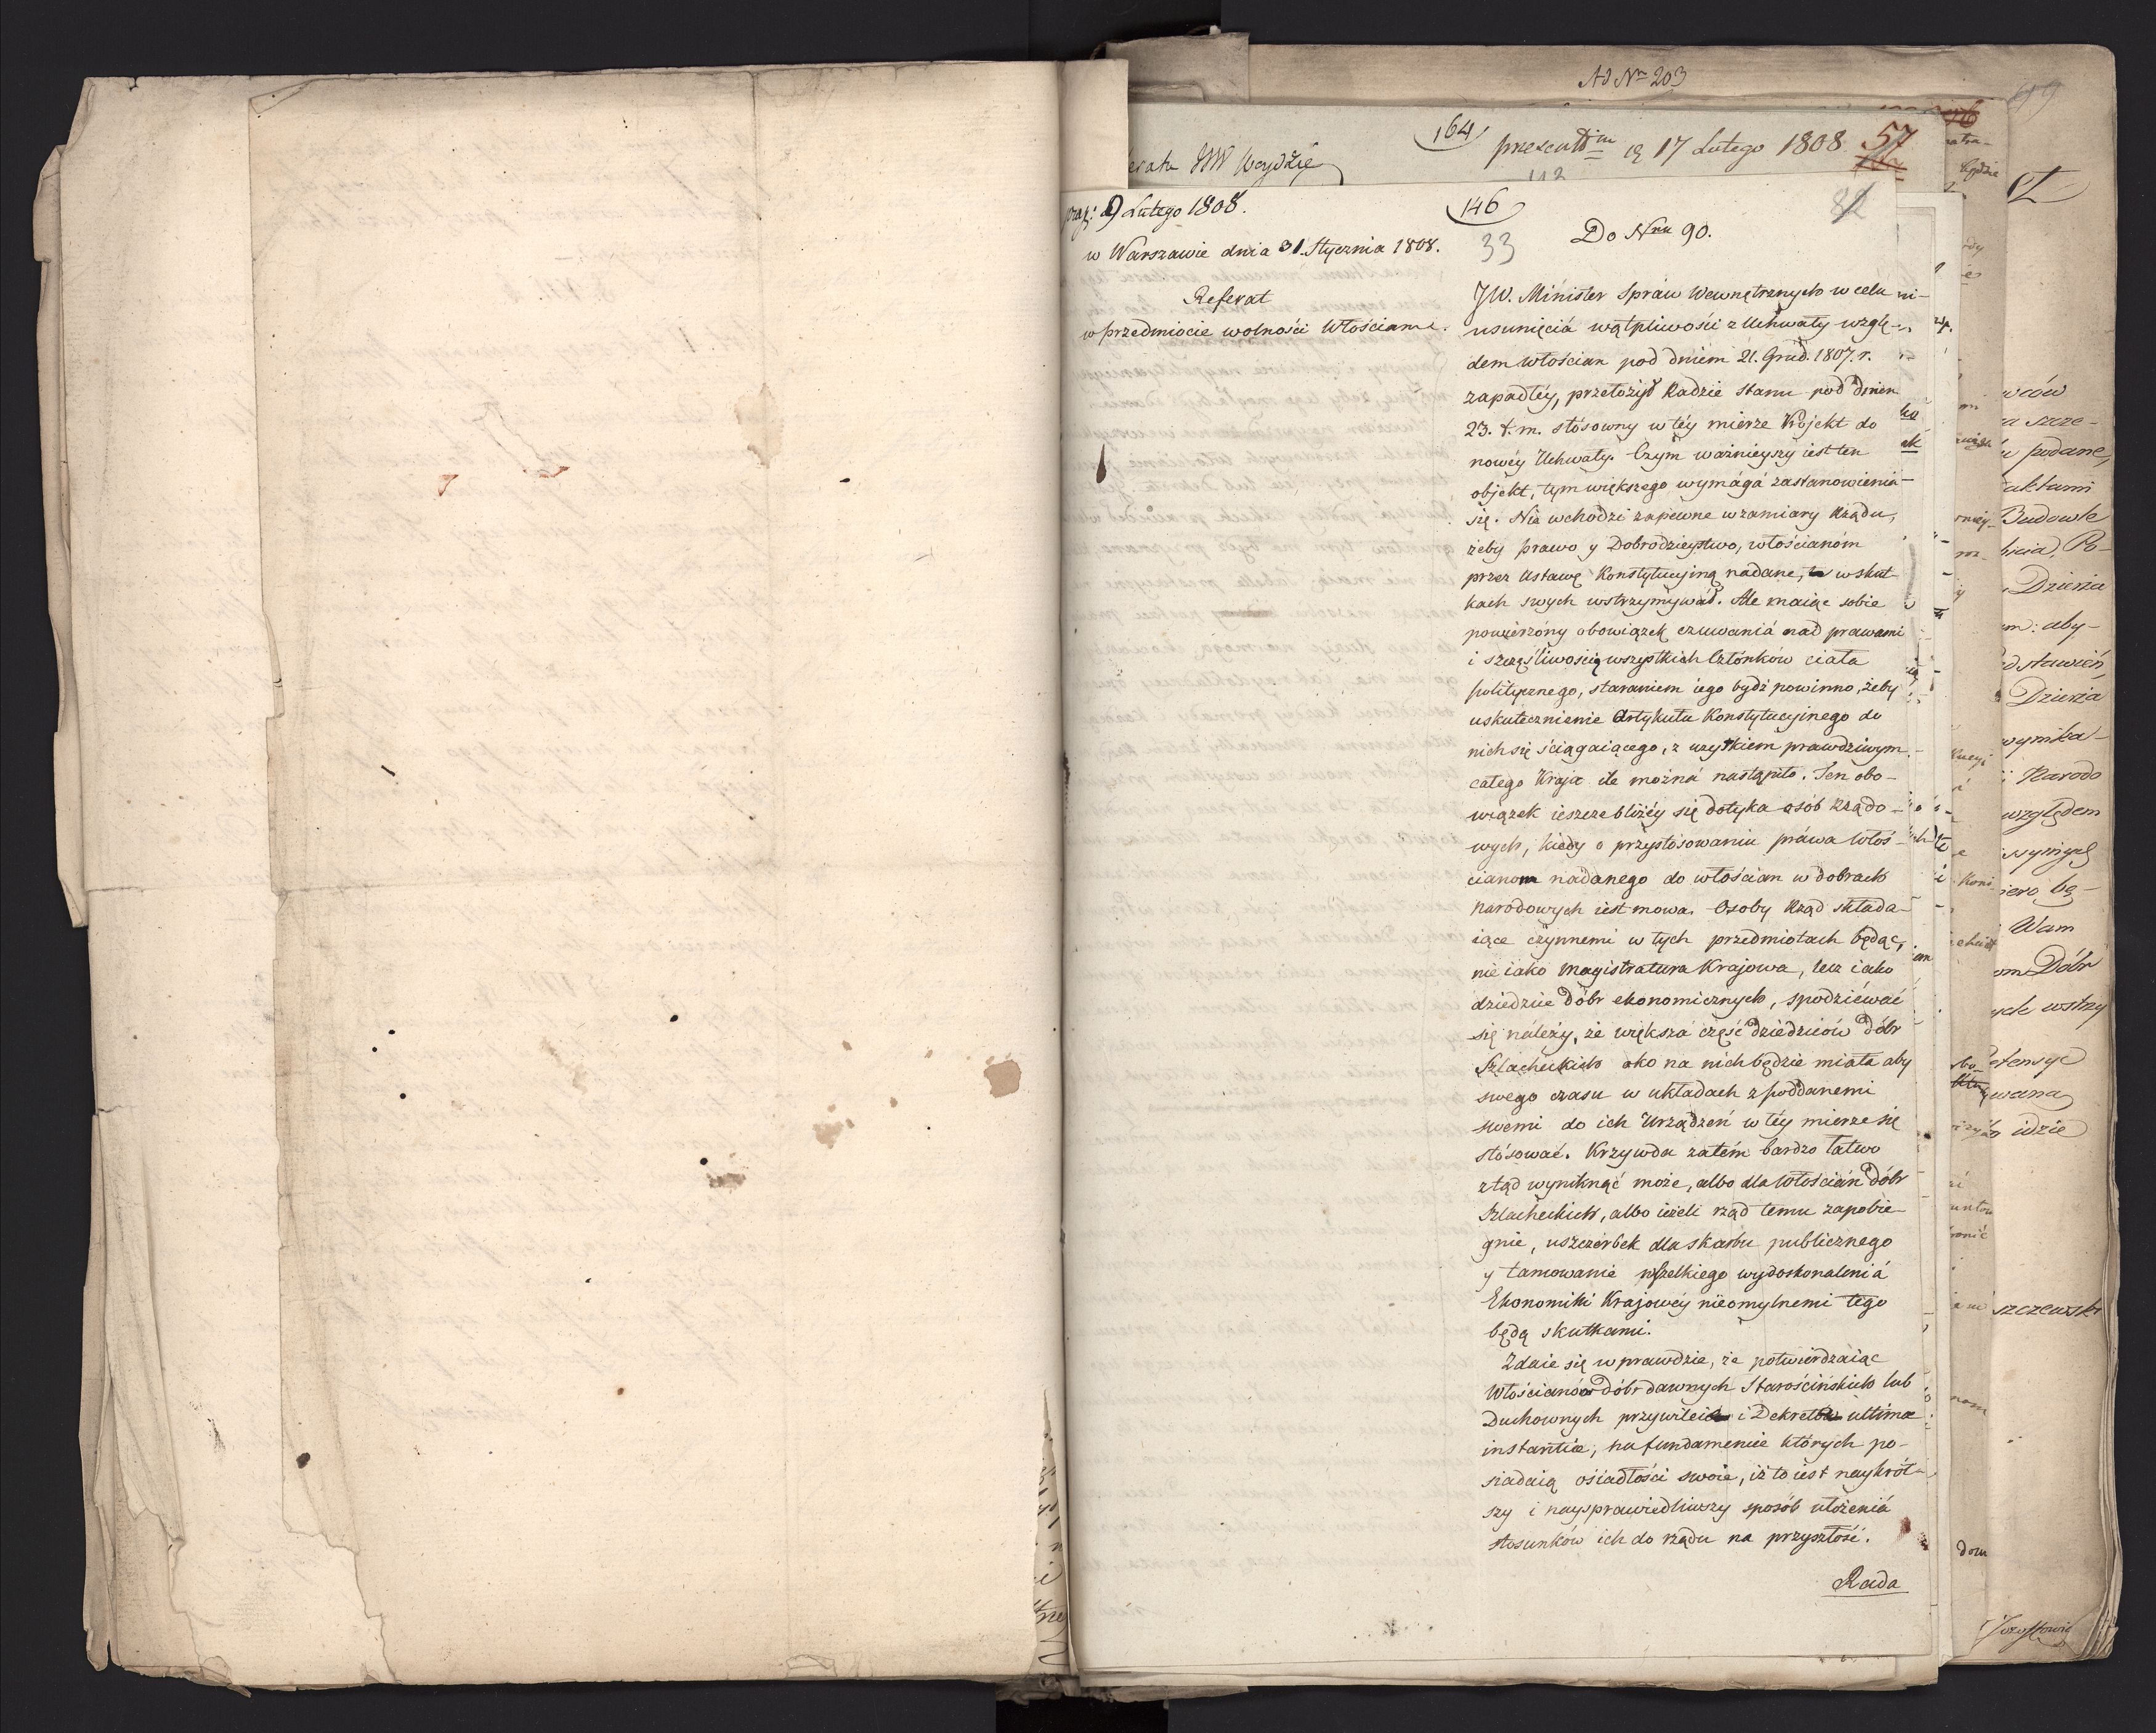 Ad Nr 203
164
57
eratu JW Woydzię
presentm 17 Lutego 1808
112
praes: 9 Lutego 1808.
146
82
w Warszawie dnia 31. Stycznia 1808.
33
Do Nru 90.
Referat
w przedmiocie wolności Włościanom.
JW. Minister Spraw Wewnętrznych w celu
usunięciá wątpliwości z Uchwały wzglę-
dem włościan pod dniem 21. Grud. 1807. r.
zapadłéy, przełożył Radzie Stanu pod dniem
23. t. m. stósowny w téy mierze Projekt do
nowéy Uchwały. Czym ważnieyszy iest ten
objekt, tym większego wymágá zastanowieniá
się. Nie wchodzi zapewne w zamiary Rządu,
żeby prawo y Dobrodzieystwo, włościanóm
przez Ustawę Konstytucyiną nadane, w skut-
kach swych wstrzymywać. Ale maiąc sobie
powierzóny obowiązek czuwaniá nad prawami
i szczęśliwością wszystkich Człónków ciała
politycznego, staraniem iego bydź powinno, żeby
uskutecznienie Artykułu Konstytucyinego do
nich się ściągaiącego, z użytkiem prawdziwym
całego Kraju ile możná nastąpiło. Ten obo-
wiązek ieszcze bliżéy się dotyka osób Rządo-
wych, kiedy o przystósowaniu práwa Włoś-
cianom nadanego do włościan w dobrach
Narodowych iest mowa. Osoby Rząd składa-
iące czynnemi w tych przedmiotach będąc,
nie iako Magistratura Krajowa, lecz iako
dziedzice Dóbr ekonomicznych, spodziéwać
się należy, że większá część Dziedziców Dóbr
Szlacheckich oko na nich będzie miała aby
swego czasu w układach z poddanemi
swemi do ich Urządzeń w téy mierze się
stósować. Krzywda zatém bardzo łatwo
ztąd wyniknąć może, albo dla Włościán Dóbr
Szlacheckich, albo ieżeli rząd temu zapobie-
gnie, uszczérbek dla skarbu publicznego
y tamowanie wszelkiego wydoskonaleniá
Ekonomiki Krajowéy nieomylnemi tego
będą skutkami.
Zdaie się wprawdzie, że potwierdzaiąc
Włościanów Dóbr dawnych Starościńskich lub
Duchownych przywileie i Dekreta ultimæ
instantiæ, na fundamencie których po-
siadaią osiadłości swoie, iż to iest naykrót-
szy i naysprawiedliwszy sposób ułożeniá
stosunków ich do rządu na przyszłość.
Rada
podane,
aktami
Budowle
Dzierża
aby-
Dzierża
Narodo
względem
Wam
Dóbr
wstrzy
idzie